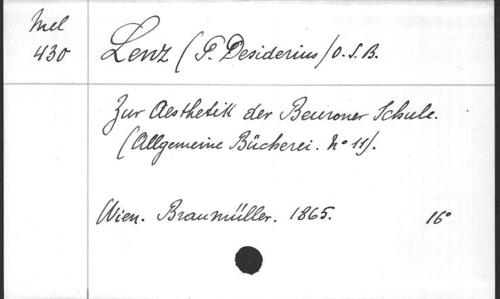 Mel
430
Lenz (P. Desiderius) O.S.B.
Zur Aesthetik der Beuroner Schule.
(Allgemeine Bücherei. No 11).
Wien. Braumüller. 1865. 16°